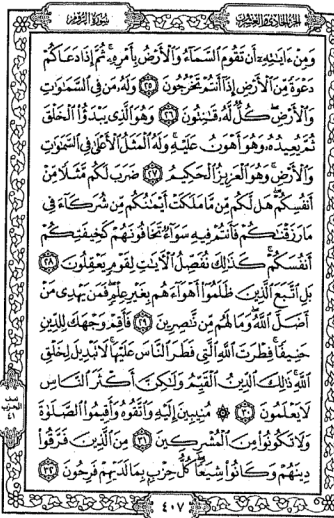 الجزء الحادي والعشرون
سورة الروم
وَمِنْ ءَايَٰتِهِۦٓ أَن تَقُومَ ٱلسَّمَآءُ وَٱلْأَرْضُ بِأَمْرِهِۦ ثُمَّ إِذَا دَعَاكُمْ
دَعْوَةً مِّنَ ٱلْأَرْضِ إِذَآ أَنتُمْ تَخْرُجُونَ ٢٥ وَلَهُۥ مَن فِى ٱلسَّمَٰوَٰتِ
وَٱلْأَرْضِ كُلٌّ لَّهُۥ قَٰنِتُونَ ٢٦ وَهُوَ ٱلَّذِى يَبْدَؤُا۟ ٱلْخَلْقَ
ثُمَّ يُعِيدُهُۥ وَهُوَ أَهْوَنُ عَلَيْهِ وَلَهُ ٱلْمَثَلُ ٱلْأَعْلَىٰ فِى ٱلسَّمَٰوَٰتِ
وَٱلْأَرْضِ وَهُوَ ٱلْعَزِيزُ ٱلْحَكِيمُ ٢٧ ضَرَبَ لَكُم مَّثَلًا مِّنْ
أَنفُسِكُمْ هَل لَّكُم مِّن مَّا مَلَكَتْ أَيْمَٰنُكُم مِّن شُرَكَآءَ فِى
مَا رَزَقْنَٰكُمْ فَأَنتُمْ فِيهِ سَوَآءٌ تَخَافُونَهُمْ كَخِيفَتِكُمْ
أَنفُسَكُمْ كَذَٰلِكَ نُفَصِّلُ ٱلْءَايَٰتِ لِقَوْمٍ يَعْقِلُونَ ٢٨
بَلِ ٱتَّبَعَ ٱلَّذِينَ ظَلَمُوٓا۟ أَهْوَآءَهُم بِغَيْرِ عِلْمٍ فَمَن يَهْدِى مَنْ
أَضَلَّ ٱللَّهُ وَمَا لَهُم مِّن نَّٰصِرِينَ ٢٩ فَأَقِمْ وَجْهَكَ لِلدِّينِ
حَنِيفًا فِطْرَتَ ٱللَّهِ ٱلَّتِى فَطَرَ ٱلنَّاسَ عَلَيْهَا لَا تَبْدِيلَ لِخَلْقِ
ٱللَّهِ ذَٰلِكَ ٱلدِّينُ ٱلْقَيِّمُ وَلَٰكِنَّ أَكْثَرَ ٱلنَّاسِ
لَا يَعْلَمُونَ ٣٠ ۞ مُنِيبِينَ إِلَيْهِ وَٱتَّقُوهُ وَأَقِيمُوا۟ ٱلصَّلَوٰةَ
وَلَا تَكُونُوا۟ مِنَ ٱلْمُشْرِكِينَ ٣١ مِنَ ٱلَّذِينَ فَرَّقُوا۟
دِينَهُمْ وَكَانُوا۟ شِيَعًا كُلُّ حِزْبٍۭ بِمَا لَدَيْهِمْ فَرِحُونَ ٣٢
٤٠٧